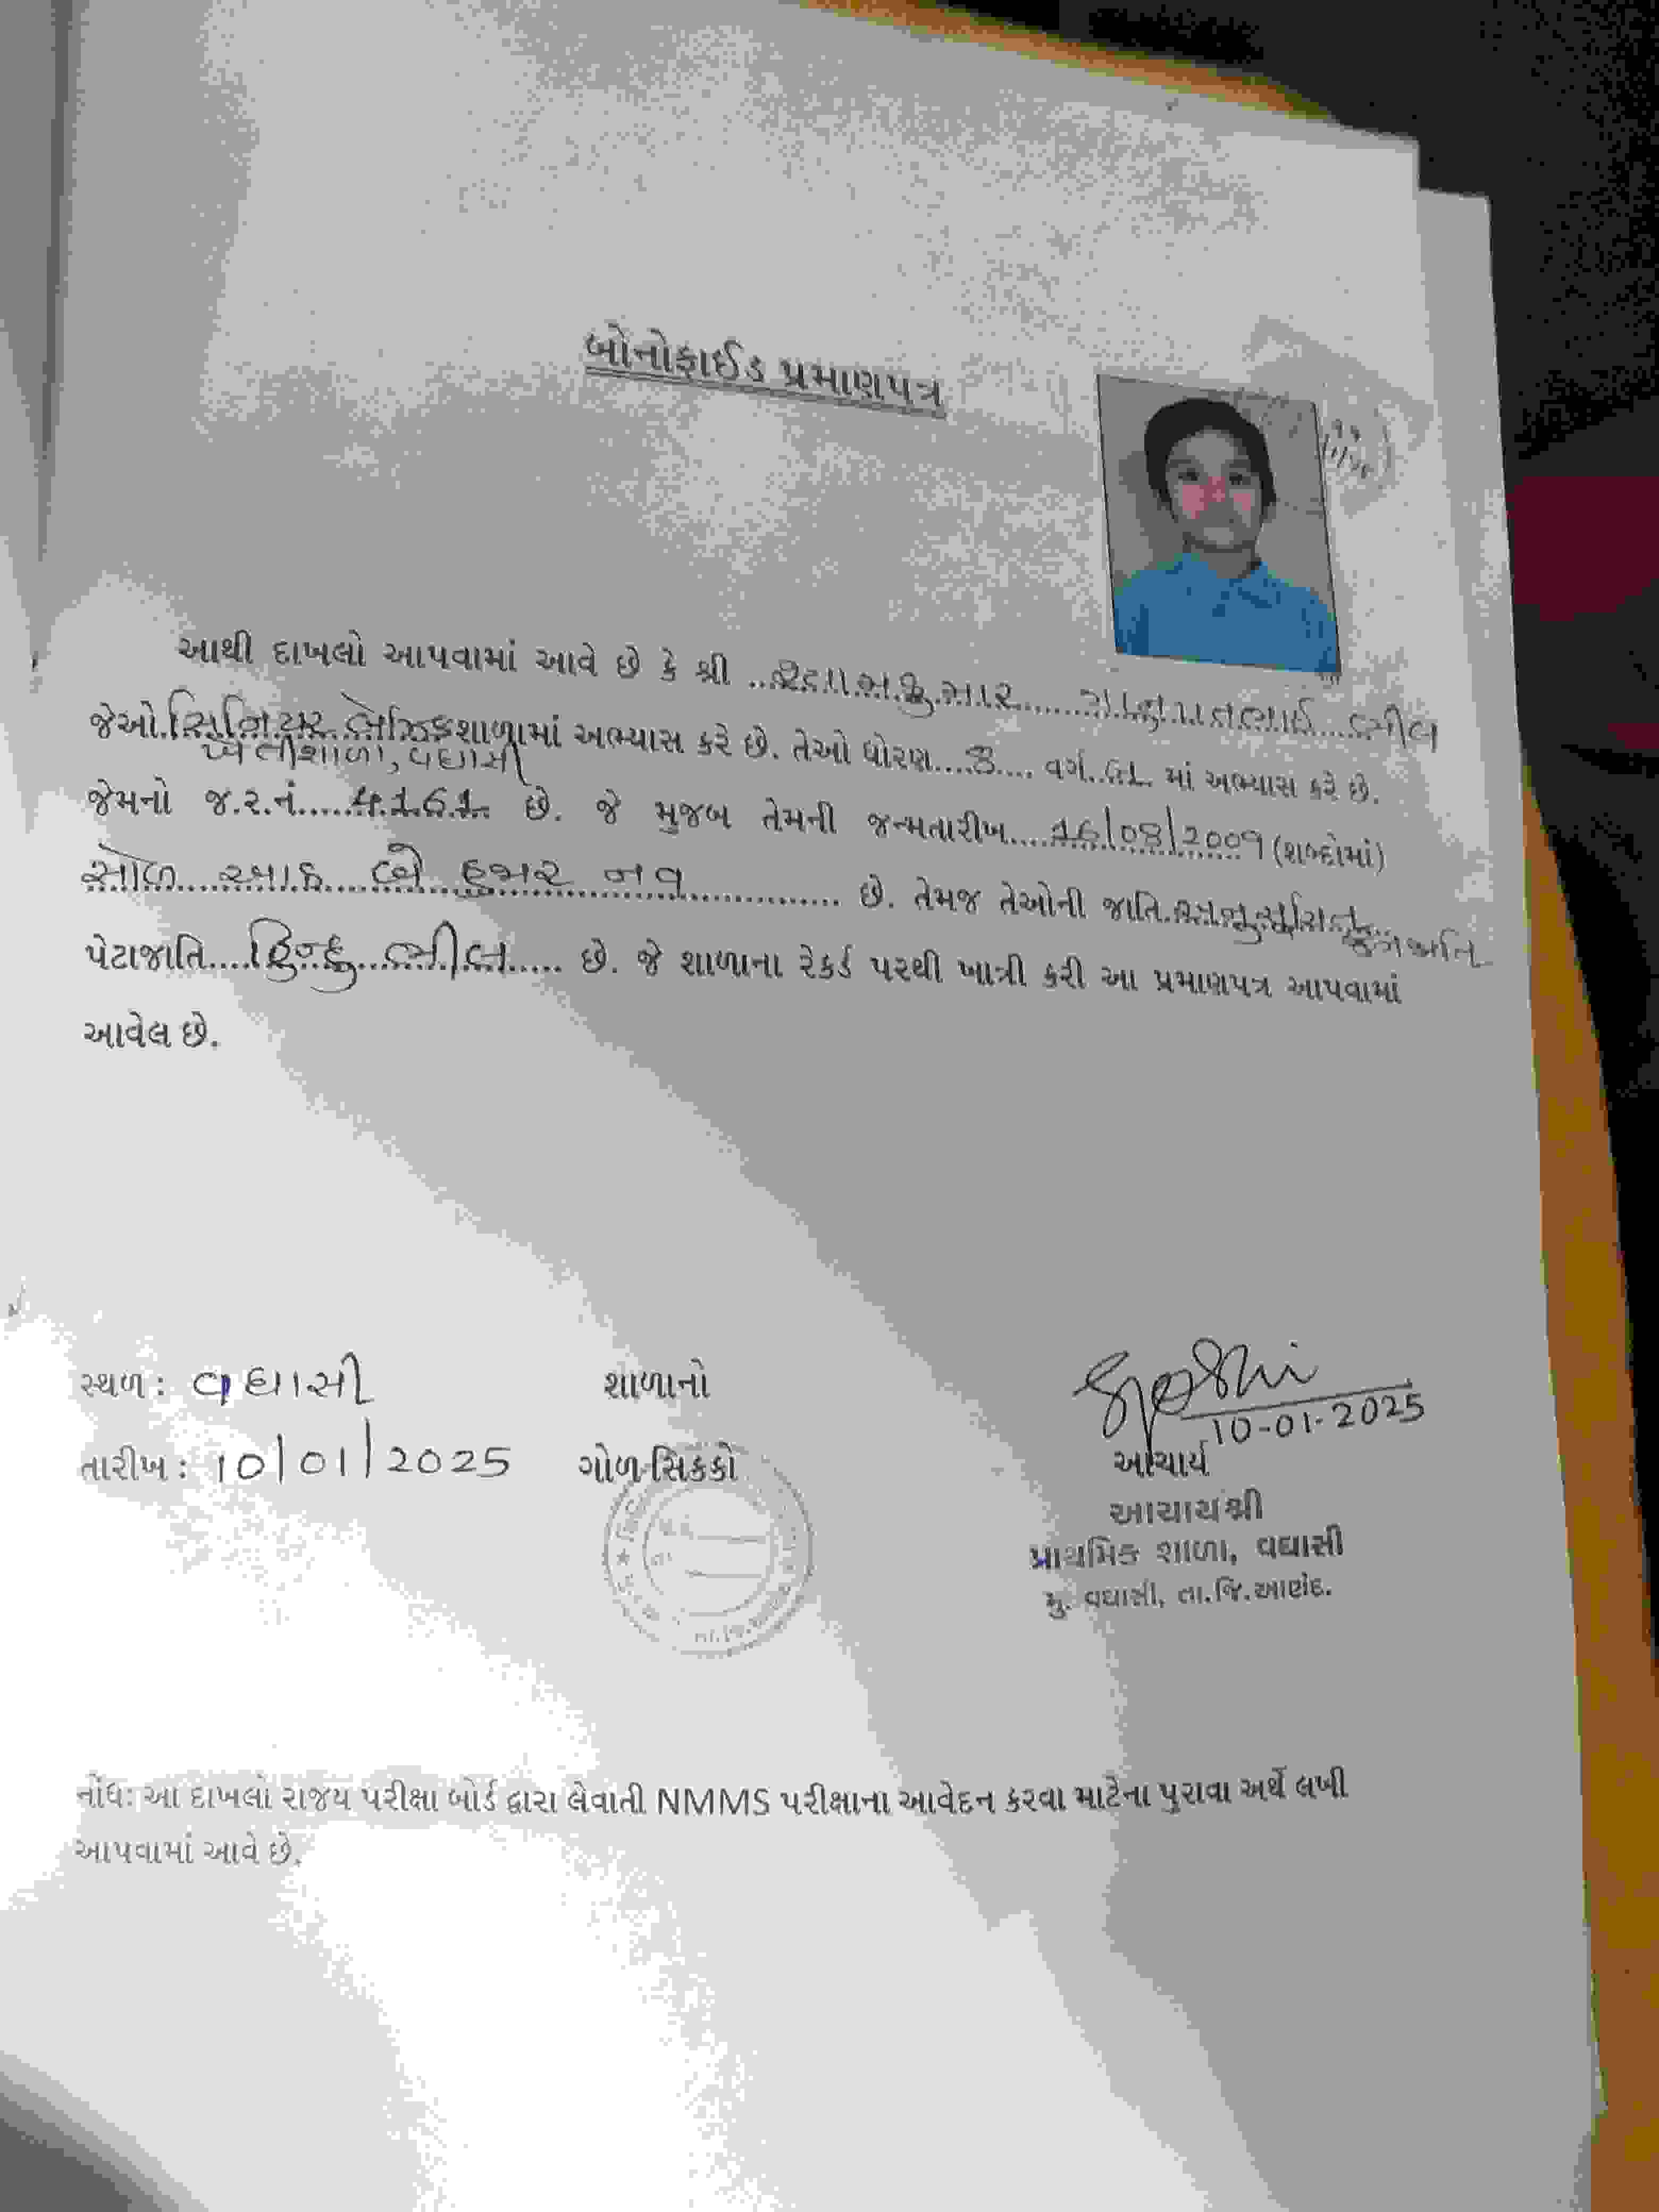 બોનોફાઈડ પ્રમાણપત્ર
આથી દાખલો આપવામાં આવે છે કે શ્રી ..શ્યામકુમાર...... ભીલ
જેઓ.સિનિયર બેઝિક શાળામાં અભ્યાસ કરે છે. તેઓ ધોરણ....8.... વર્ગ.. માં અભ્યાસ કરે છે.
ખેતીશાળા, વઘાસી
જેમનો જ.ર.નં......4161. છે. જે મુજબ તેમની જન્મતારીખ....16/08/2009 (શબ્દોમાં)
સોળ આઠ બે હજાર નવ છે. તેમજ તેઓની જાતિ.અનુસૂચિત
જનજાતિ
પેટાજાતિ....હિન્દુ ભીલ..... છે. જે શાળાના રેકર્ડ પરથી ખાત્રી કરી આ પ્રમાણપત્ર આપવામાં
આવેલ છે.
સ્થળ : વઘાસી શાળાનો
10-01-2025
તારીખ : 10/01/2025 ગોળ સિકકો આચાર્ય
આચાર્યશ્રી
પ્રાથમિક શાળા, વઘાસી
મુ. વઘાસી, તા.જિ.આણંદ.
નોંધ: આ દાખલો રાજય પરીક્ષા બોર્ડ દ્વારા લેવાતી NMMS પરીક્ષાના આવેદન કરવા માટેના પુરાવા અર્થે લખી
આપવામાં આવે છે.